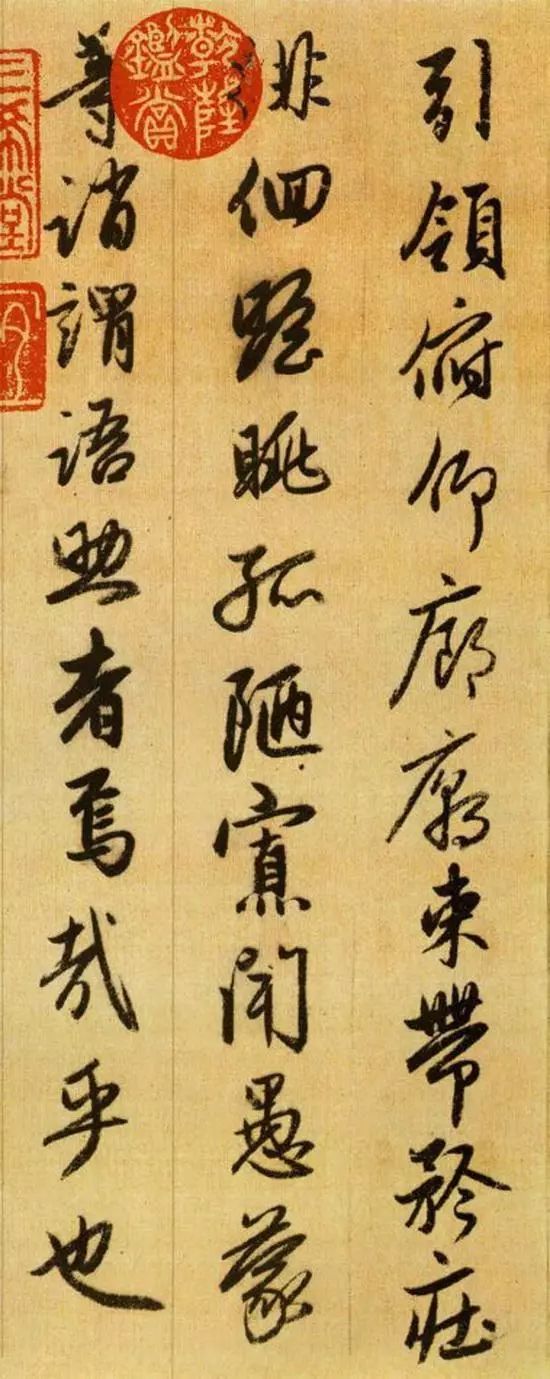 引領俯仰廊廟束帶矜莊
徘佪瞻眺孤陋寡聞愚蒙
等誚謂語助者焉哉乎也
乾隆鑑賞